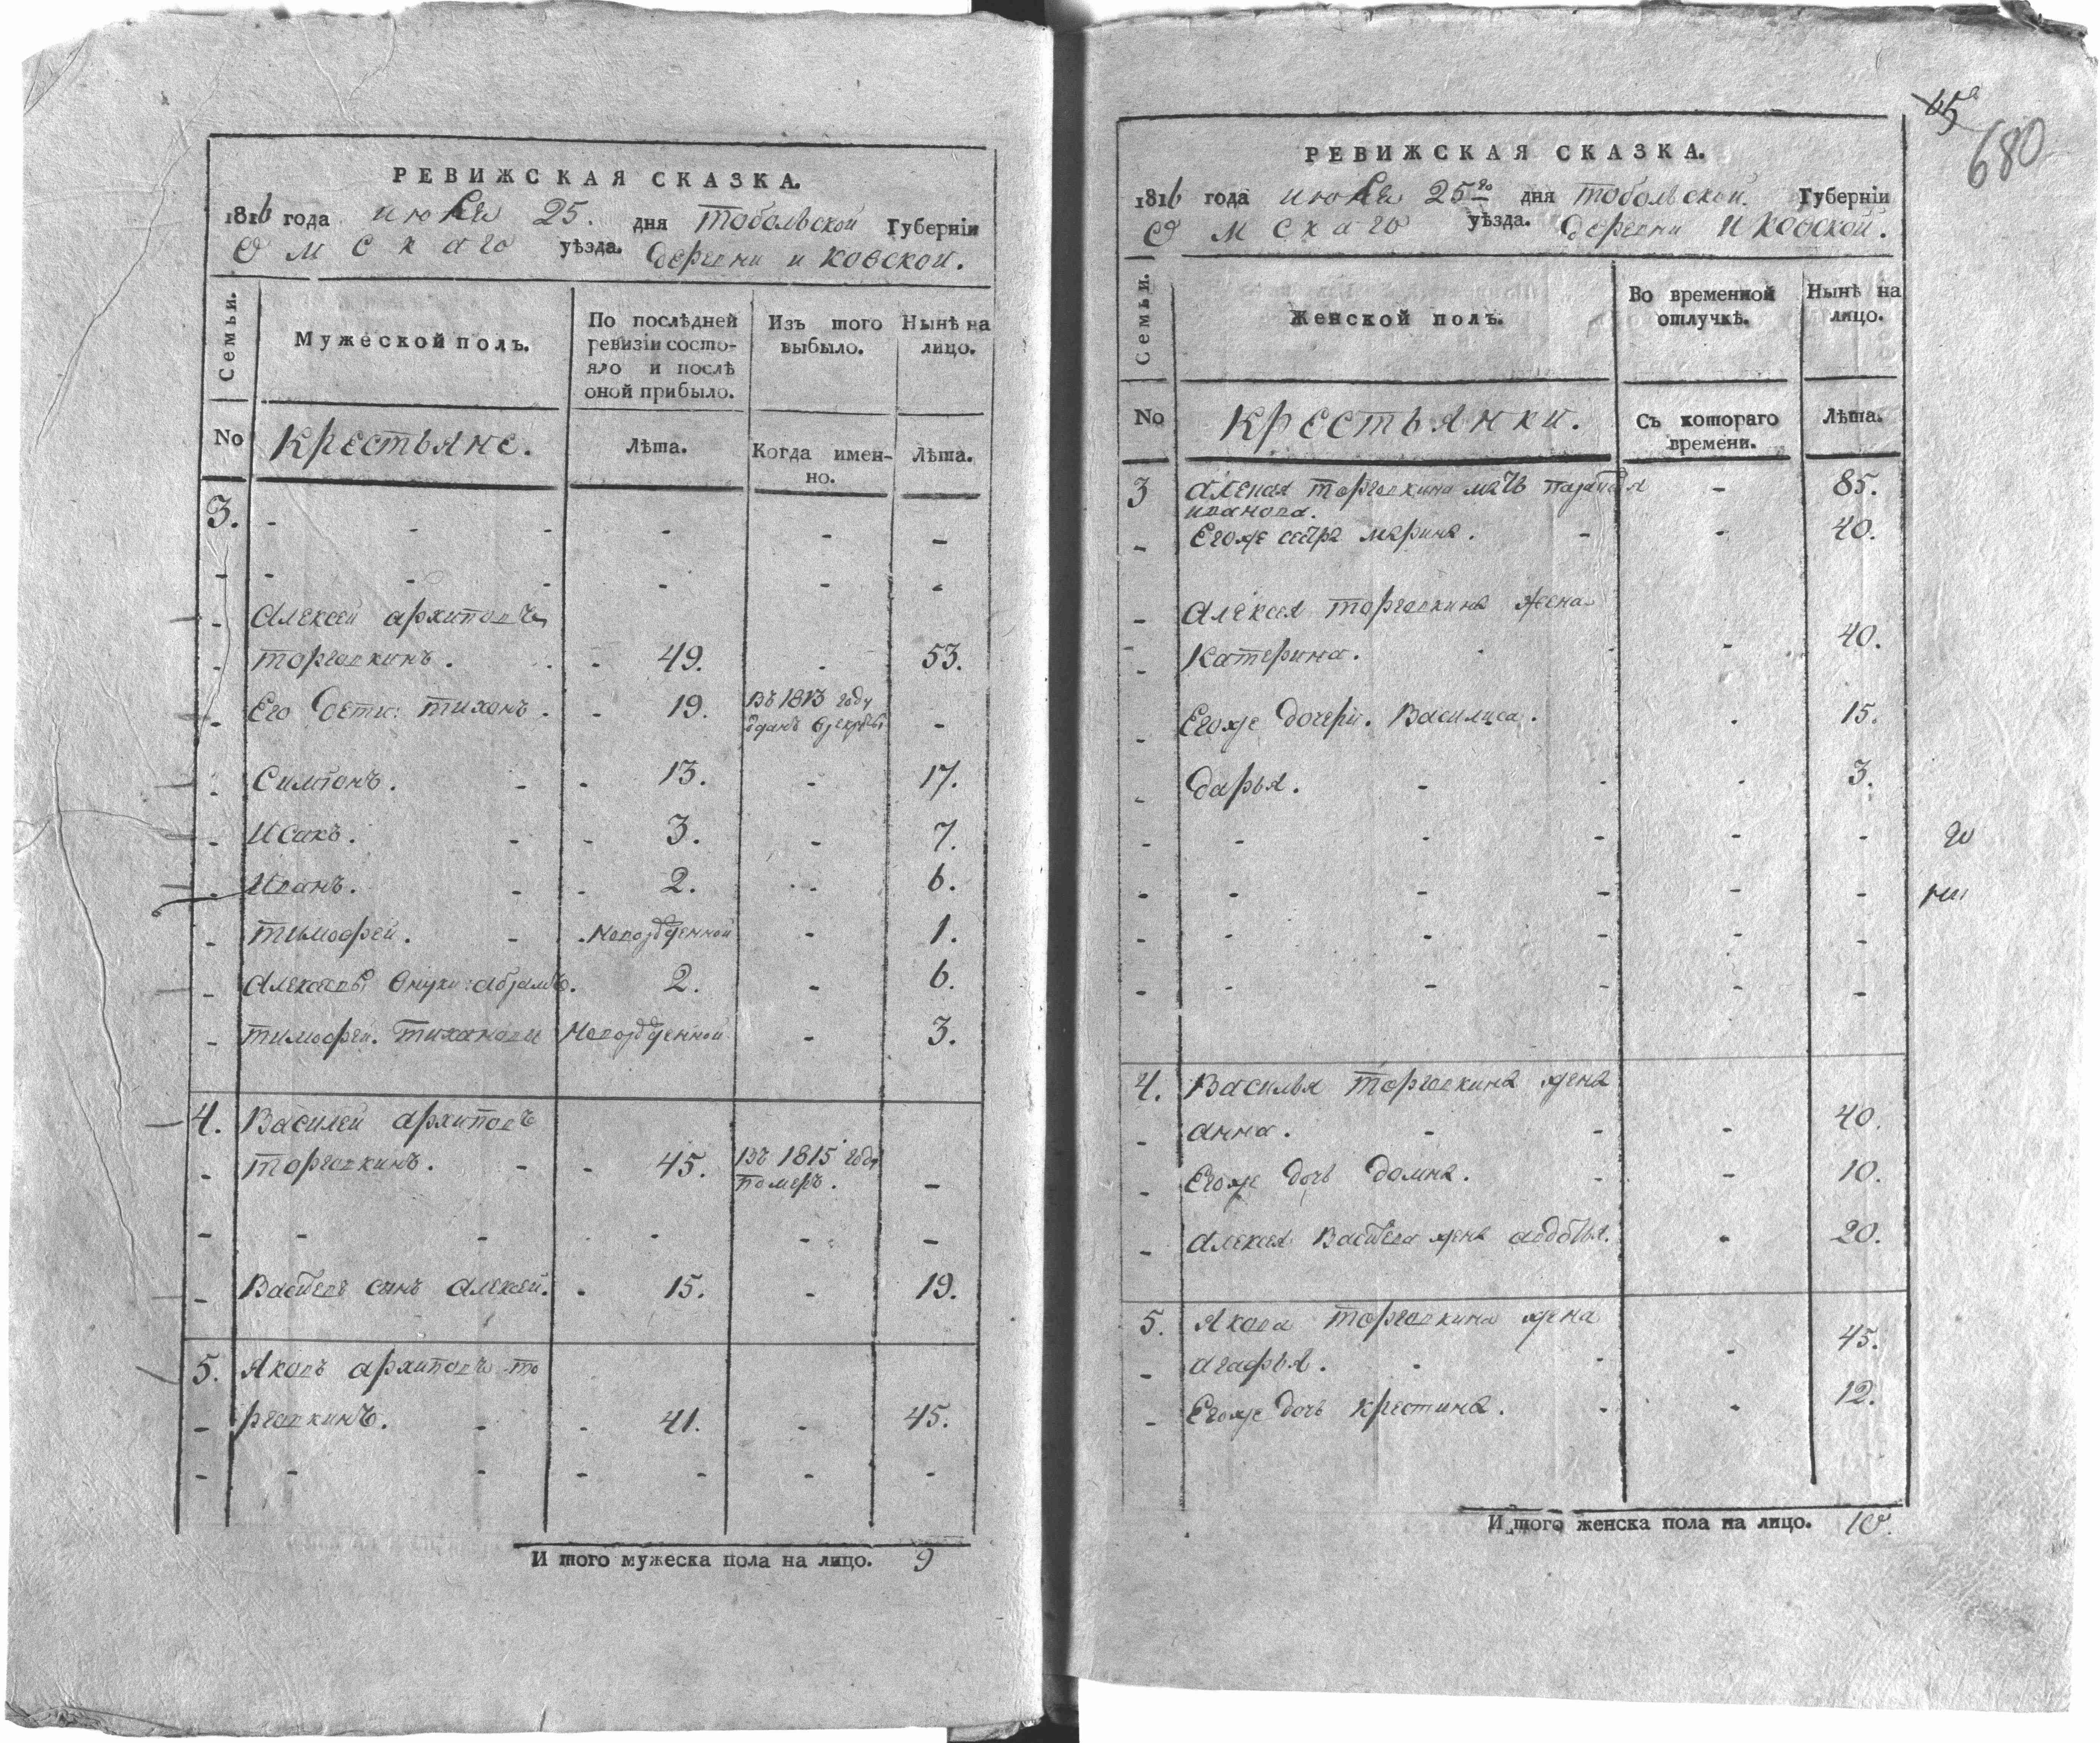 РЕВИЖСКАЯ СКАЗКА.
1816 года июля 25. дня тобольской Губернїи
Омскаго уѣзда. деревни иковской.
Семьи.
Мужеской полъ.
По послѣдней ревизїи состо-
яло и послѣ
оной прибыло.
Изъ того
выбыло.
Нынѣ на
лицо.
No
крестьяне.
Лѣта.
Когда имен-
но.
Лѣта.
3. - - - - - -
- - - - - - -
- Алексей архиповъ
- торговкинъ. - 49. - 53.
- Его дети: тихонъ. - 19. въ 1813 году
отданъ в рекруты -
- Симионъ. - - 13. - 17.
- Исакъ. - - 3. - 7.
- Иванъ. - - 2. - 6.
- тимофей. - новорожденной - 1.
- Алексевы внуки: абрамъ. 2. - 6.
- тимофей. тихановы новорожденной - 3.
4. Василей архиповъ
- торговкинъ. - - 45. въ 1815 году
померъ. -
- - - - - -
- Васильевъ сынъ алексей. - 15. - 19.
5. яковъ архиповъ то
- рговкинъ. - - 41. - 45.
- - - - - - -
И того мужеска пола на лицо. 9
65
680
РЕВИЖСКАЯ СКАЗКА.
1816 года июля 25го дня тобольской Губернїи
Омскаго уѣзда. деревни иковской.
Семьи.
Женской полъ.
Во временной
отлучкѣ.
Нынѣ на
лицо.
No
крестьянки.
Съ котораго
времени.
Лѣта.
3 алексея торговкина мать
иванова. - 85.
- Егоже сестра марина. - - 40.
- Алексея торговкина жена
- катерина. - 40.
- Егоже дочери. Василиса. - 15.
- дарья. - - - 3.
- - - - - -
- - - - - -
- - - - - -
- - - - - -
4. Василья торговкина жена
- анна. - - - 40.
- Егоже дочь домна. - - 10.
- алексея Васильева жена авдотья. - 20.
5. якова торговкина жена
- агафья. - - - 45.
- Егоже дочь крестина. - - 12.
И того женска пола на лицо. 10.